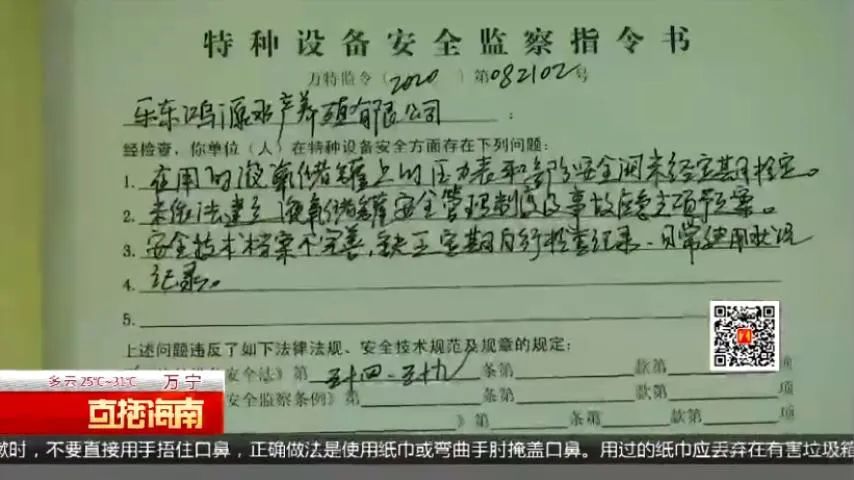 特种设备安全监察指令书
万特监令（2020 ）第082102号
乐东鸿源水产养殖有限公司：
经检查，你单位（人）在特种设备安全方面存在下列问题：
1. 在用的液氧储罐上的压力表和部分安全阀未经定期检定。
2. 未依法建立液氧储罐安全管理制度及事故应急专项预案。
3. 安全技术档案不完善，缺正定期自行检查纪录、日常使用状况
4. 记录。
5.
上述问题违反了如下法律法规、安全技术规范及规章的规定：
安全法》第五十四、五十九条第 款第 项
安全监察条例》第 条第 款第 项
》第 条第 款第 项
多云 25℃~31℃ 万宁
直播海南
嗽时，不要直接用手捂住口鼻，正确做法是使用纸巾或弯曲手肘掩盖口鼻。用过的纸巾应丢弃在有害垃圾箱